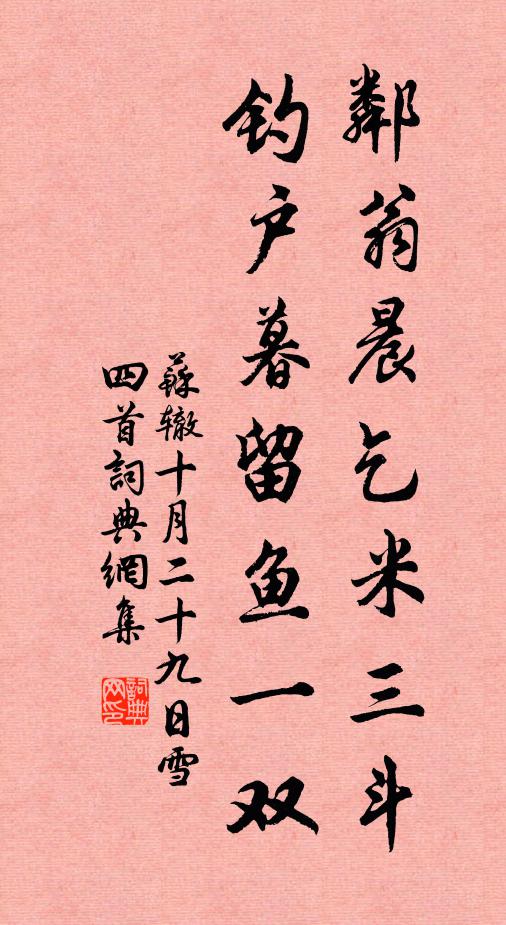 鄰翁晨乞米三斗
钓户暮留鱼一双
蘇辙十月二十九日雪
四首詞典網集
詞典网印